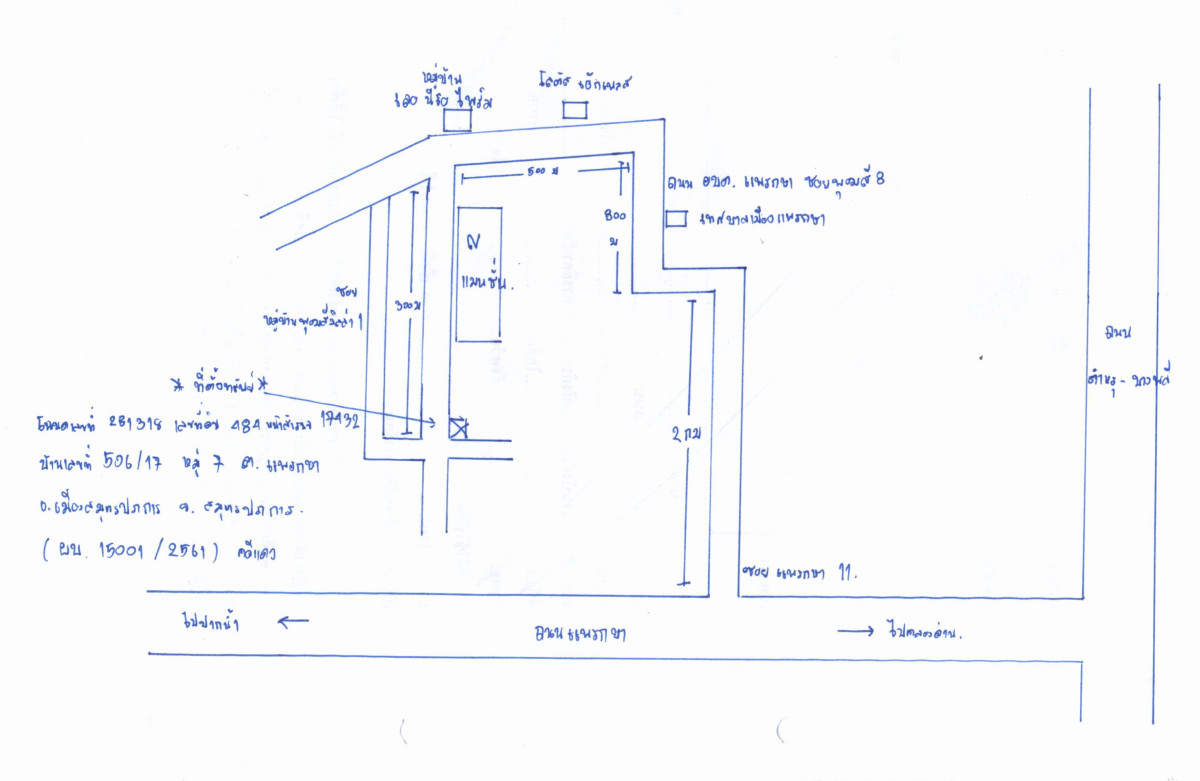 หมู่บ้าน
เดอ นีโอ ไพร์ม
โลตัส เอ็กเพรส
500 ม
ถนน อบต. แพรกษา ซอยพุฒสี 8
800
ม
เทศบาลเมืองแพรกษา
แมนชั่น.
ซอย
300 ม
หมู่บ้านพุฒสีวิลล่า 1
ถนน
ตำหรุ - บางพลี
* ที่ตั้งทรัพย์ *
โฉนดเลขที่ 281318 เลขที่ดิน 484 หน้าสำรวจ 17432
2 กม
บ้านเลขที่ 506/17 หมู่ 7 ต. แพรกษา
อ.เมืองสมุทรปราการ จ. สมุทรปราการ.
( ผบ. 15001 / 2561 ) คดีแดง
ซอย แพรกษา 11.
ไปปากน้ำ
ถนนแพรกษา
ไปคลองด่าน.